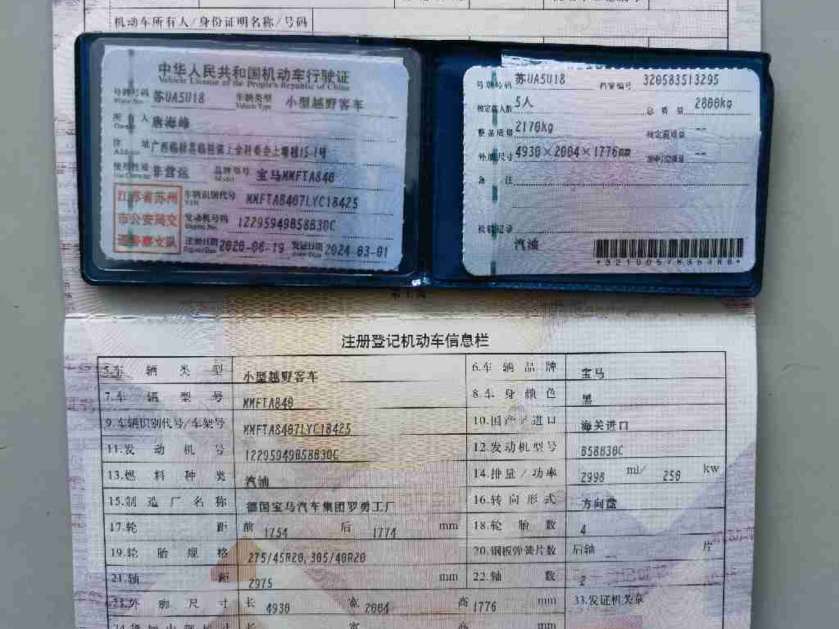 机动车所有人/身份证明名称/号码
中华人民共和国机动车行驶证
Vehicle License of the People's Republic of China
号牌号码 苏UA5U18 车辆类型 小型越野客车
所有人
住址
使用性质 非营运 品牌型号 宝马MMFTA840
江苏省苏州
市公安局交
通警察支队
车辆识别代号 MMFTA8407LYC18425
发动机号码 12295949B58B30C
注册日期 2020-06-19 发证日期 2024-03-01
号牌号码 苏UA5U18 档案编号 320583513295
核定载人数 5人 总质量 2800kg
整备质量 2170kg 核定载质量 --
外廓尺寸 4930×2004×1776mm --
备注
检验记录
汽油
注册登记机动车信息栏
5.车辆类型 小型越野客车 6.车辆品牌 宝马
7.车辆型号 MMFTA840 8.车身颜色 黑
9.车辆识别代号/车架号 MMFTA8407LYC18425 10.国产/进口 海关进口
11.发动机号 12295949B58B30C 12.发动机型号 B58B30C
13.燃料种类 汽油 14.排量/功率 2998 ml/ 250 kw
15.制造厂名称 德国宝马汽车集团罗勇工厂 16.转向形式 方向盘
17.轮距 前 1754 后 1774 mm 18.轮胎数 4
19.轮胎规格 275/45R20,305/40R20 20.钢板弹簧片数 后轴 片
21.轴距 2975 mm 22.轴数 2
23.外廓尺寸 长 4930 宽 2004 高 1776 mm 33.发证机关章